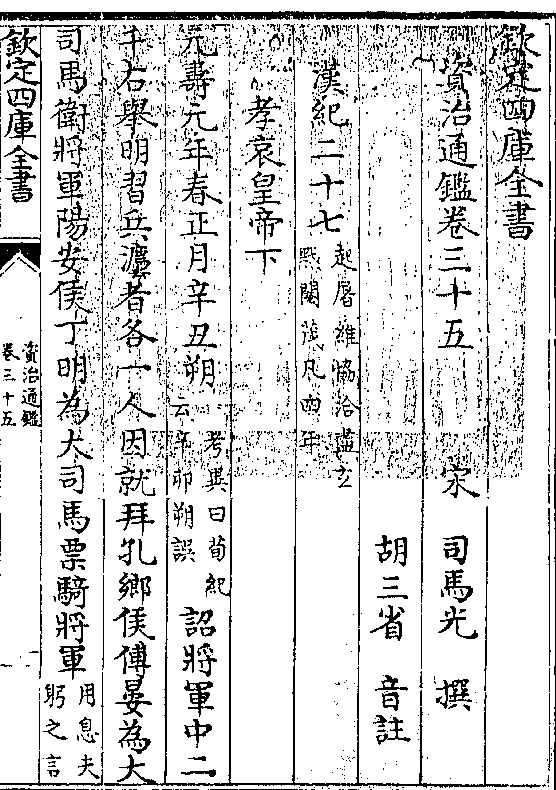 欽定四庫全書
資治通鑑卷三十五
宋 司馬光 撰
胡三省 音註
漢紀二十七起屠維協洽盡玄黓閹茂凡四年
孝哀皇帝下
元壽元年春正月辛丑朔考異曰荀紀云辛卯朔誤詔將軍中二
千石舉明習兵灋者各一人因就拜孔鄉侯傅晏為大
司馬衛將軍陽安侯丁明為大司馬票騎將軍用息夫躬之言
欽定四庫全書
資治通鑑
卷三十五